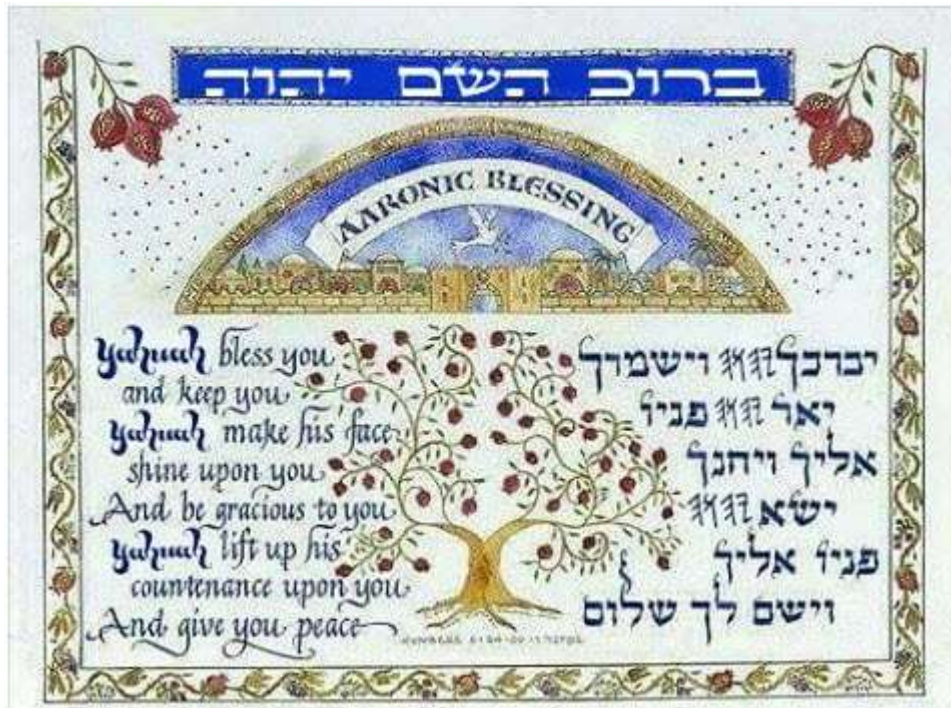 ברוכ השם יהוה
AARONIC BLESSING
Yahuah bless you
and keep you
Yahuah make his face
shine upon you
And be gracious to you
Yahuah lift up his
countenance upon you
And give you peace
יברכך 𐤉𐤄𐤅𐤄 וישמרך
יאר 𐤉𐤄𐤅𐤄 פניו
אליך ויחנך
ישא 𐤉𐤄𐤅𐤄
פניו אליך
וישם לך שלום
NUMBERS 6:24-26